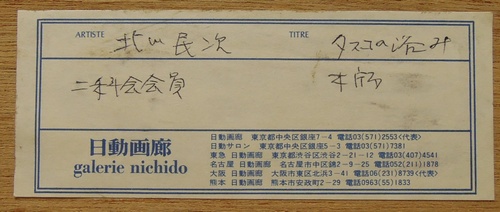 ARTISTE 北川民次 TITRE タスコの泊み
二科会会員 木版
日動画廊
galerie nichido
日動画廊 東京都中央区銀座7-4 電話03(571)2553<代表>
日動サロン 東京都中央区銀座5-3 電話03(571)7381
東急 日動画廊 東京都渋谷区渋谷2-21-12 電話03(407)4541
名古屋 日動画廊 名古屋市中区錦2-9-25 電話052(211)1878
大阪 日動画廊 大阪市東区北浜3-41 電話06(231)8739<代表>
熊本 日動画廊 熊本市安政町2-29 電話0963(55)1833